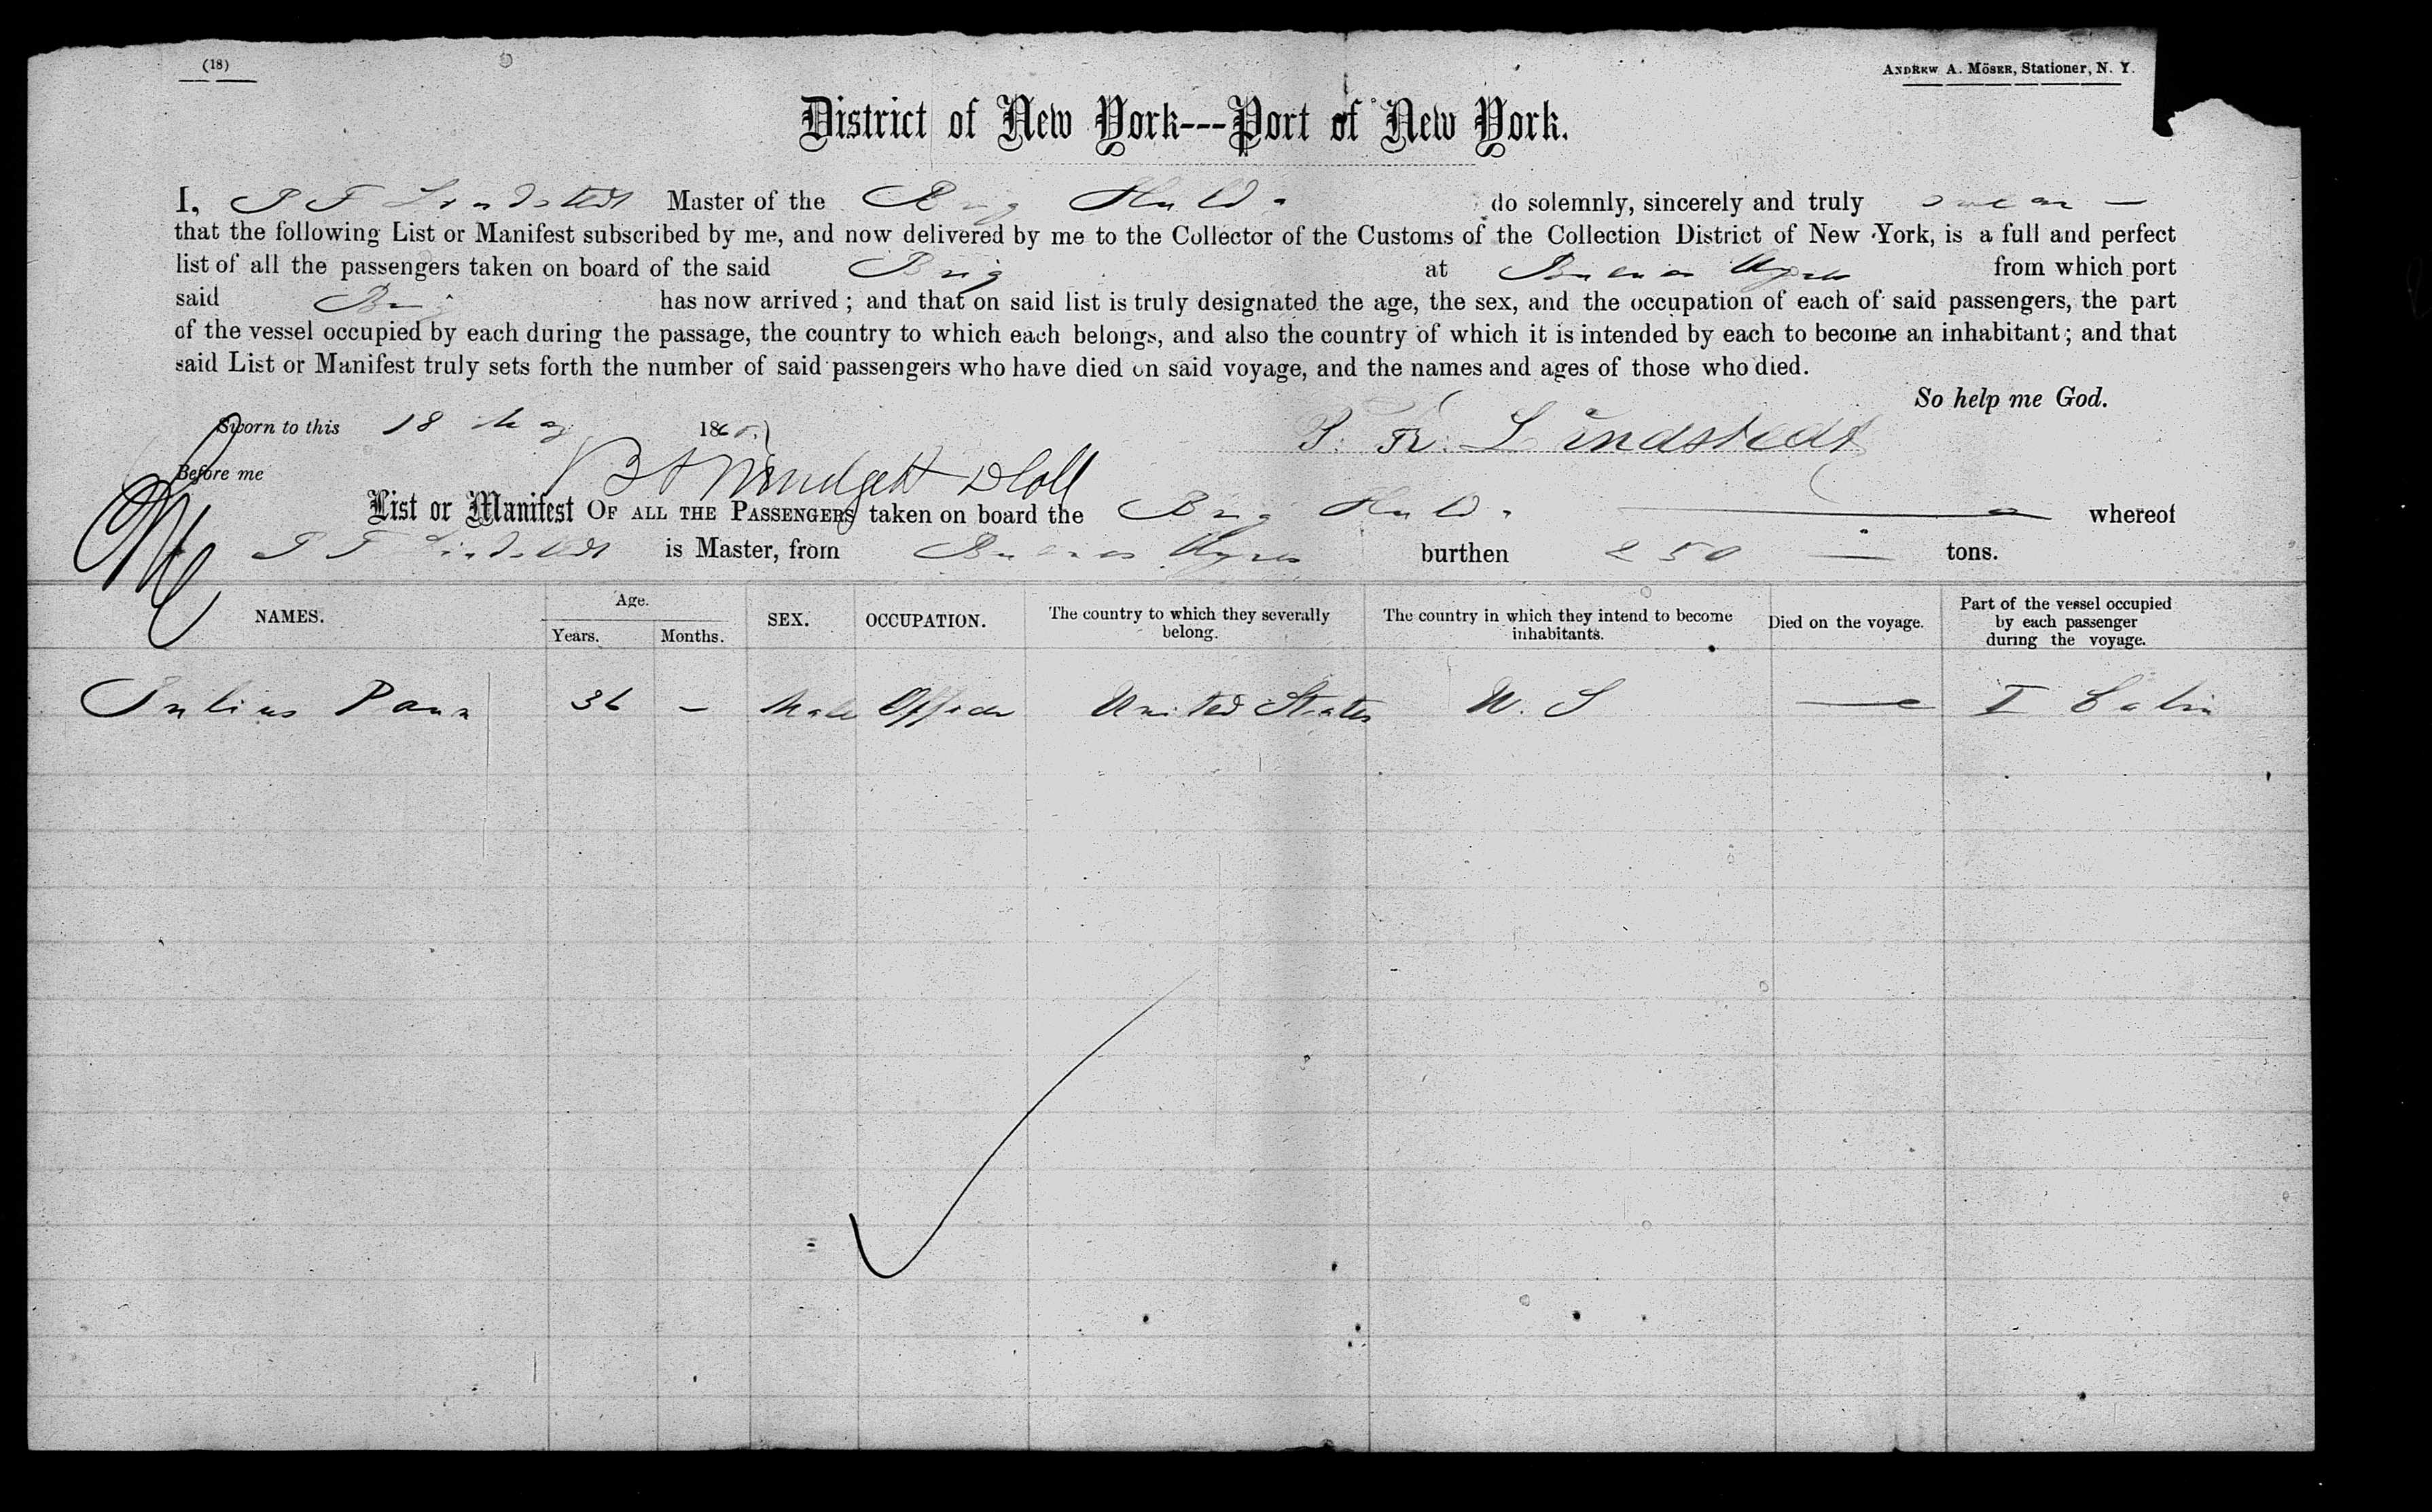 (18)
Andrew A. Möser, Stationer, N. Y.
District of New York---Port of New York.
I, P F Lindstedt Master of the Brig Hulda do solemnly, sincerely and truly swear —
that the following List or Manifest subscribed by me, and now delivered by me to the Collector of the Customs of the Collection District of New York, is a full and perfect
list of all the passengers taken on board of the said Brig at Buenos Ayres from which port
said Brig has now arrived ; and that on said list is truly designated the age, the sex, and the occupation of each of said passengers, the part
of the vessel occupied by each during the passage, the country to which each belongs, and also the country of which it is intended by each to become an inhabitant ; and that
said List or Manifest truly sets forth the number of said passengers who have died on said voyage, and the names and ages of those who died.
So help me God.
Sworn to this 18 May 186
P. Fr. Lindstedt
Before me
List or Manifest OF ALL THE PASSENGERS taken on board the Brig Hulda whereof
P F Lindstedt is Master, from Buenos Ayres burthen 250 — tons.
NAMES. Age. Years. Months. SEX. OCCUPATION. The country to which they severally belong. The country in which they intend to become inhabitants. Died on the voyage. Part of the vessel occupied by each passenger during the voyage.
Julius 36 — Male Officer United States U. S — I Cabin